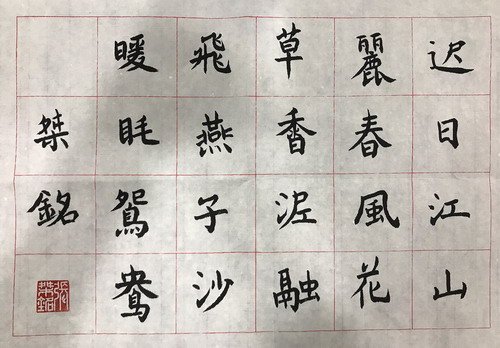 迟日江山
麗春風花
草香泥融
飛燕子沙
暖眠鴛鴦
桀銘